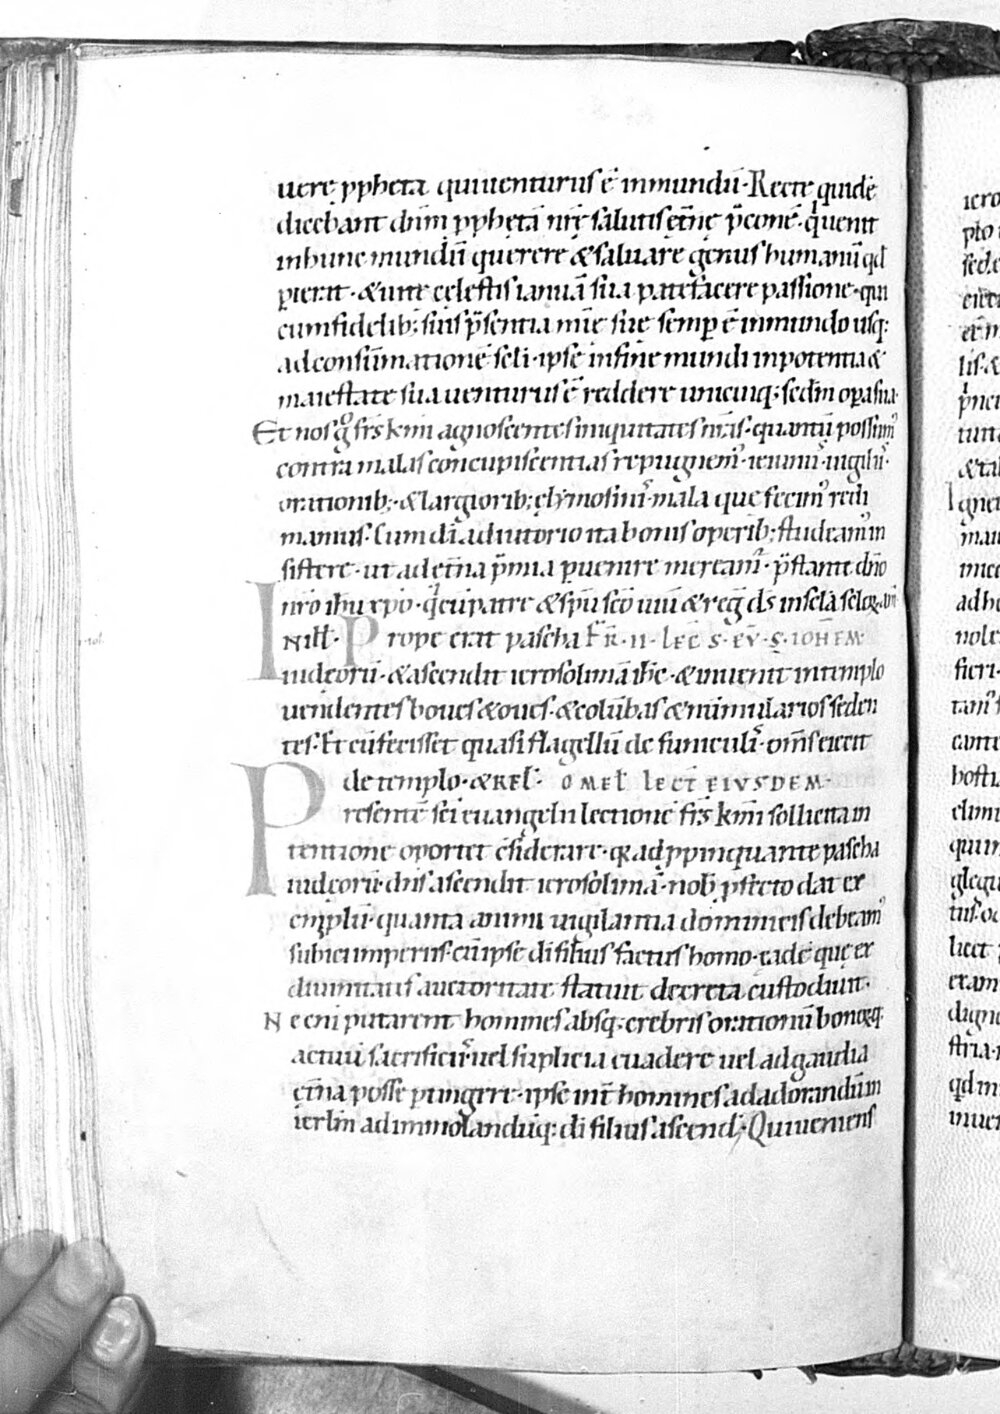 uere ꝓpheta qui uenturus ē in mundū· Recte quidē
dicebant dn̄m ꝓphetā nr̄ę salutis et̄nę p̄conē· q̇ uenit
in hunc mundū querere & saluare genus humanū qđ
ꝑierat· & uitę celestis ianuā sua patefacere passione· qui
cum fidelib; suis p̄sentia mīe suę semꝑ ē in mundo usq;
ad consūmationē sc̄li· ipse in fine mundi in potentia &
maiestate sua uenturus ē reddere unicuiq; sedm̄ oꝑa sua·
Et nos g̊ fr̄s km̄i agnoscentes iniquitates nr̄as· quantū possum᾽
contra malas concupiscentias repugnem᾽· ieiuniis· uigiliis·
orationib;· & largiorib; elymosinis· mala que fecim᾽ redi
mamus· Cum dī adiutorio ita bonis operib; studeam᾽ in
sistere· ut ad et̄na p̄mia ꝑuenire meream᾽· p̄stante dn̄o
nr̄o ih̄u xp̄o· q̇ cū patre & sp̄u sc̄o uiuit & reg̃ ds̄ in sc̄la sclo₂ am̄
IN ill̄· Prope erat pascha FR̄· II· LEC̄ S· EV̄· S· IOH̄EM·
iudeorū· & ascendit ierosolimā ih̄c· & inuenit in templo
uendentes boues & oues· & colūbas & numularios seden
tes· Et cū fecisset quasi flagellū de funiculis· om̄s eiecit
de templo· & REL̄· OMEL̄ LECT̄ EIVSDEM·
Presentē sc̄i euangelii lectionē fr̄s km̄i sollicita in
tentione oportet c̄siderare· q̇a ad ꝓpinquante pascha
iudeorū· dn̄s ascendit ierosolimā· nob̄ ꝓfecto dat ex
emplū· quanta animi uigilantia dominicis debeam᾽
subici imperiis· cū ipse dī filius factus homo· eadē quę ex
diuinitatis auctoritate statuit decreta custodiuit·
Ne eni putarent homines absq; crebris orationū bono₂q;
actuū sacrificiis· uel suplicia euadere uel ad gaudia
et̄na posse ꝑtingere· ipse int̄ homines ad adorandū in
ierlm̄ ad immolandūq; dī filius ascend̄· Qui ueniens